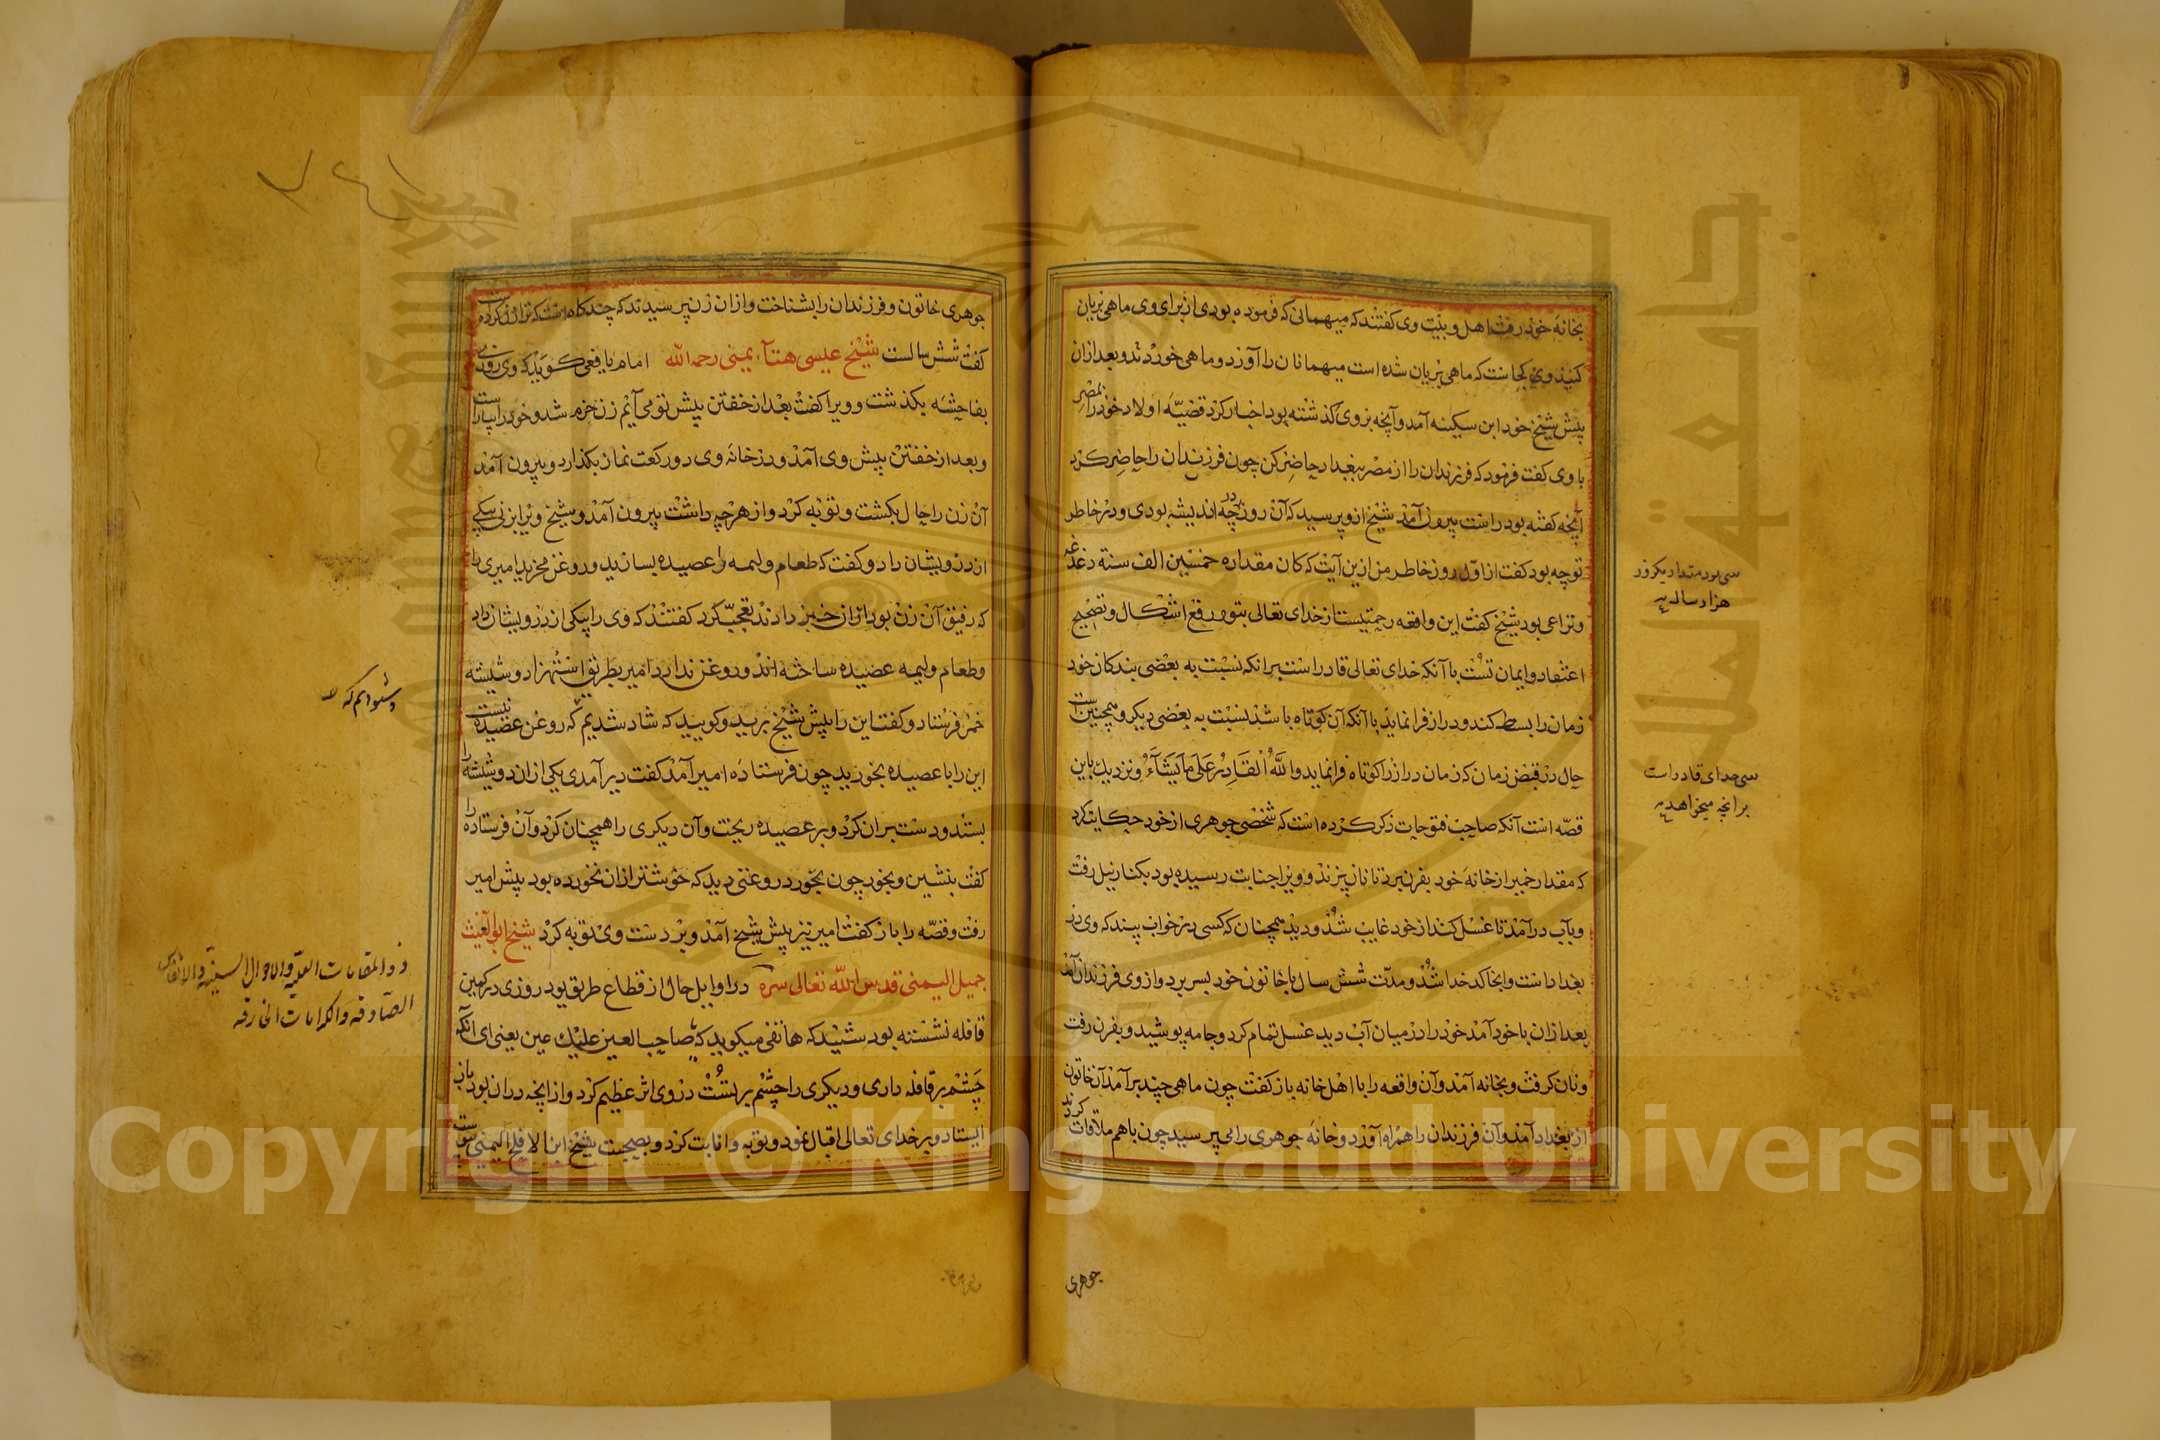 بخانه خود رفت اهل و بیت وی گفتند که میهمانی که فرموده بودی از برای وی ماهی بریان
کنیذ وی کجاست که ماهی بریان شده است میهمانان را آورد و ماهی خوردند و بعد ازان
پیش شیخ خود ابن سکینه آمد و آنچه بر وی گذشته بود اخبار کرد قضیّه اولاد خود را بمصر
با وی گفت فرمود که فرزندان را از مصر ببغداد حاضر کن چون فرزندان را حاضر کرد
آنچه گفته بود راست بیرون آمد شیخ ازو پرسید که آن روز در چه اندیشه بودی و در خاطر
تو چه بود گفت از اوّل روز خاطر من ازین آیت که کان مقداره خمسین الف سنة دغدغه
و نزاعی بود شیخ گفت این واقعه رحمتیست از خدای تعالی بتو و رفع اشکال و تصحیح
اعتقاد و ایمان تست با آنکه خدای تعالی قادر است برانکه نسبت به بعضی بندکان خود
زمان را بسط کند و دراز فرا نماید با آنکه آن کوتاه باشد نسبت به بعضی دیکر و همچنین است
حال در قبض زمان که زمان دراز را کوتاه فرا نماید والله القادر علی ما یشآء و نزدیک باین
قصّه است آنکه صاحب فتوحات ذکر کرده است که شخصی جوهری از خود حکایت کرد
که مقدار خمیر از خانه خود بفرن برد تا نان پزند و ویرا جنابت رسیده بود بکنار نیل رفت
و بآب در آمد تا غسل کند از خود غایب شد و دید همچنان که کسی در خواب بیند که وی در
بغداد است و انجا کدخدا شد و مدّت شش سال با خاتون خود بسر برد و از وی فرزندان آمد
بعد ازان با خود آمد خود را در میان آب دید غسل تمام کرد و جامه پوشید و بفرن رفت
و نان گرفت و بخانه آمد و آن واقعه را با اهل خانه باز گفت چون ماهی چند برآمد آن خاتون
از بغداد آمد و آن فرزندان را همراه آورد و خانه جوهری را می پرسید چون باهم ملاقات کردند
سی بود مقدار یکروز
هزار ساله
سی خدای قادر است
برانچه میخواهد
جوهری
جوهری خاتون و فرزندان را بشناخت و ازان زن پرسیدند که چند کاه است که ترا زن کرده
گفت شش سالست شیخ عیسی هتآر یمنی رحمه الله امام یافعی کوید که وی روزی
بفاحشه بگذشت و ویرا گفت بعد از خفتن پیش تو می آیم زن خرم شد و خود را بیاراست
و بعد از خفتن پیش وی آمد و در خانه وی دو رکعت نماز بگذارد و بیرون آمد
آن زن را حال بگشت و توبه کرد و از هرچه داشت بیرون آمد و شیخ ویرا بزنی بیکی
از درویشان داد و گفت که طعام ولیمه را عصیده بسازید و روغن مخرید امیری را
که رفیق آن زن بود ازان خبر دادند تعجّب کرد گفتند که وی را بیکی از درویشان داد
و طعام ولیمه عصیده ساخته اند و روغن ندارد امیر بطریق استهزا دو شیشه
خمر فرستاد و گفت این را پیش شیخ برید و کویید که شاد شدیم که روغن عصیده نیست
این را با عصیده بخورید چون فرستاده امیر آمد گفت دیر آمدی یکی ازان دو شیشه را
بستد و دست بران کرد و بر عصیده ریخت و آن دیکری را همچنان کرد و آن فرستاده را
گفت بنشین و بخور چون بخورد روغنی دید که خوشتر ازان نخورده بود پیش امیر
رفت و قصّه را باز گفت امیر نیز پیش شیخ آمد و بر دست وی توبه کرد شیخ ابو الغیث
جمیل الیمنی قدس الله تعالی سره در اوایل حال از قطاع طریق بود روزی در کمین
قافله نشسته بود شنید که هاتفی میکوید که یا صاحب العین علیک عین یعنی ای آنکه
چشم بر قافله داری و دیکری را چشم بر تست در وی اثر عظیم کرد و از انچه دران بود باز
ایستاد و بر خدای تعالی اقبال نمود و توبه و انابت کرد و بصحبت شیخ ابن الافلح الیمنی پیوست
ذو المقامات العلیّه والاحوال السنیّه والانفاس
الصّادقه والکرامات الخارقه